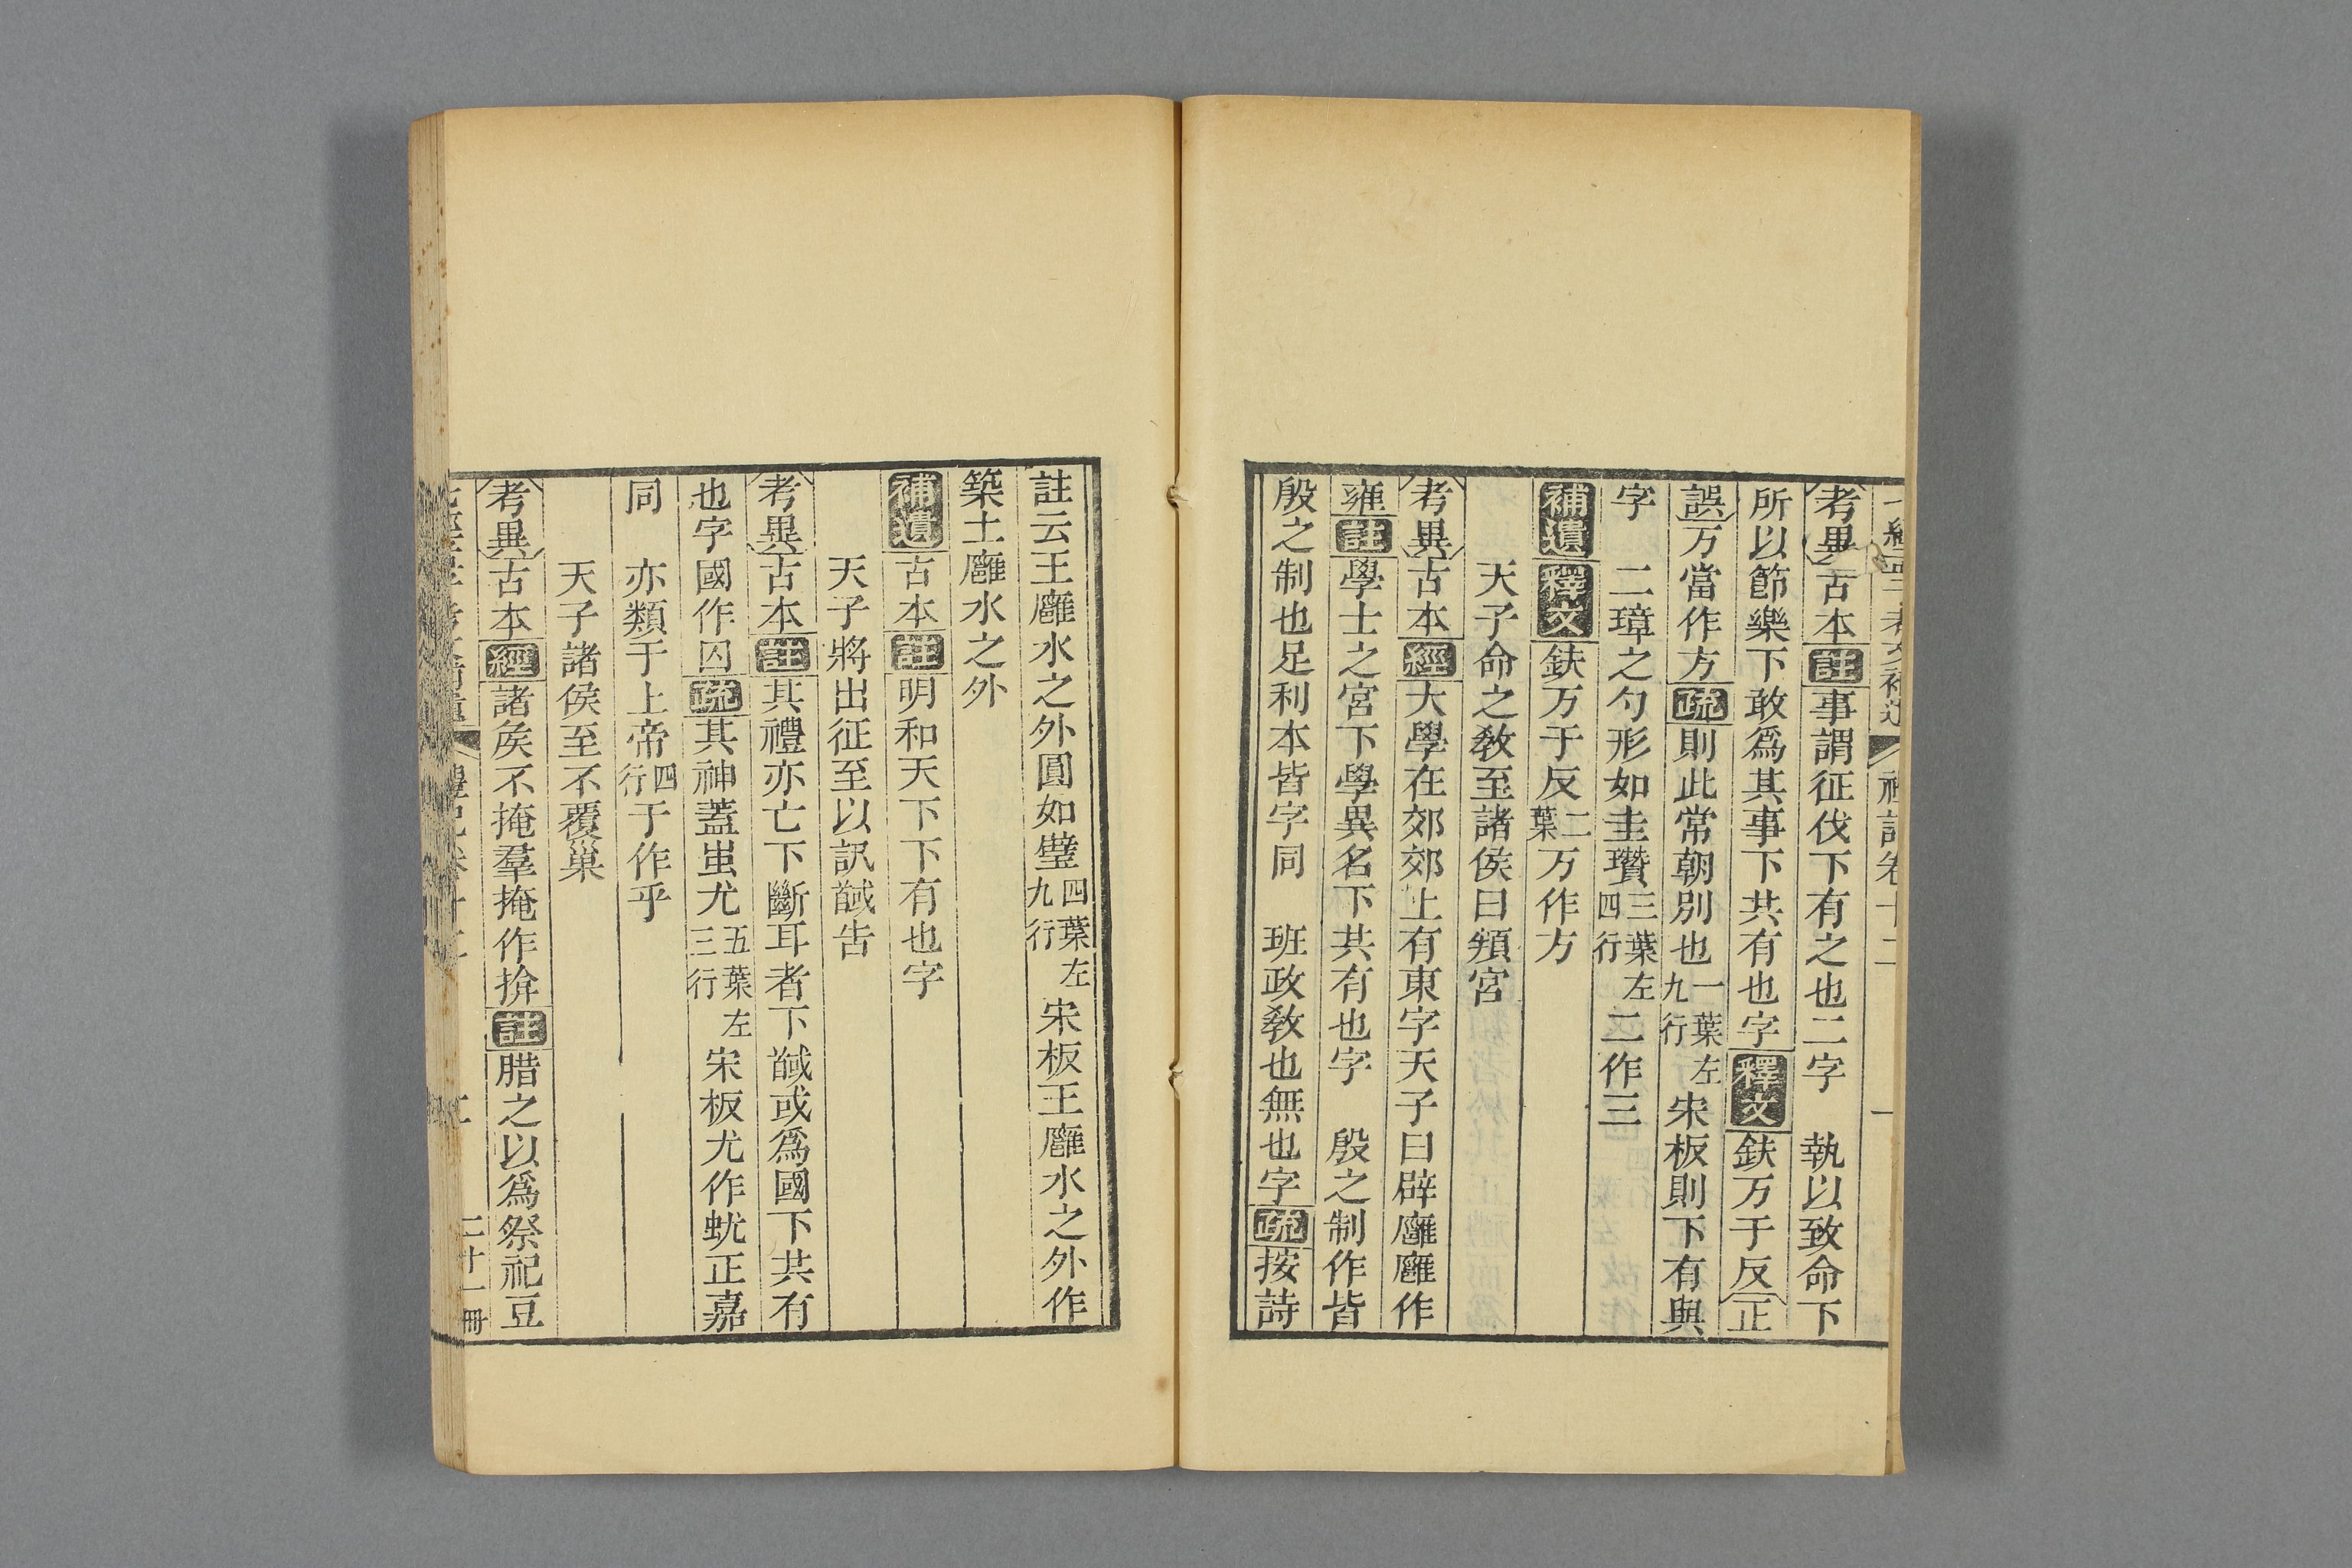 考異古本註事謂征伐下有之也二字　執以致命下
所以節樂下敢爲其事下共有也字釋文鈇万于反正
誤万當作方疏則此常朝別也一葉左九行宋板則下有與
字　二璋之勺形如圭瓚三葉左四行二作三
補遺釋文鈇万于反二葉万作方
天子命之敎至諸侯曰頖宮
考異古本經大學在郊郊上有東字天子曰辟廱廱作
雍註學士之宮下學異名下共有也字　殷之制作皆
殷之制也足利本皆字同　班政敎也無也字疏按詩
註云王廱水之外圓如璧四葉左九行宋板王廱水之外作
築土廱水之外
補遺古本註明和天下下有也字
天子將出征至以訊馘告
考異古本註其禮亦亡下斷耳者下馘或爲國下共有
也字國作囚疏其神蓋蚩尤五葉左三行宋板尤作蚘正嘉
同　亦類于上帝四行于作乎
天子諸侯至不覆巢
考異古本經諸矦不掩羣掩作揜註腊之以爲祭祀豆
二十一冊